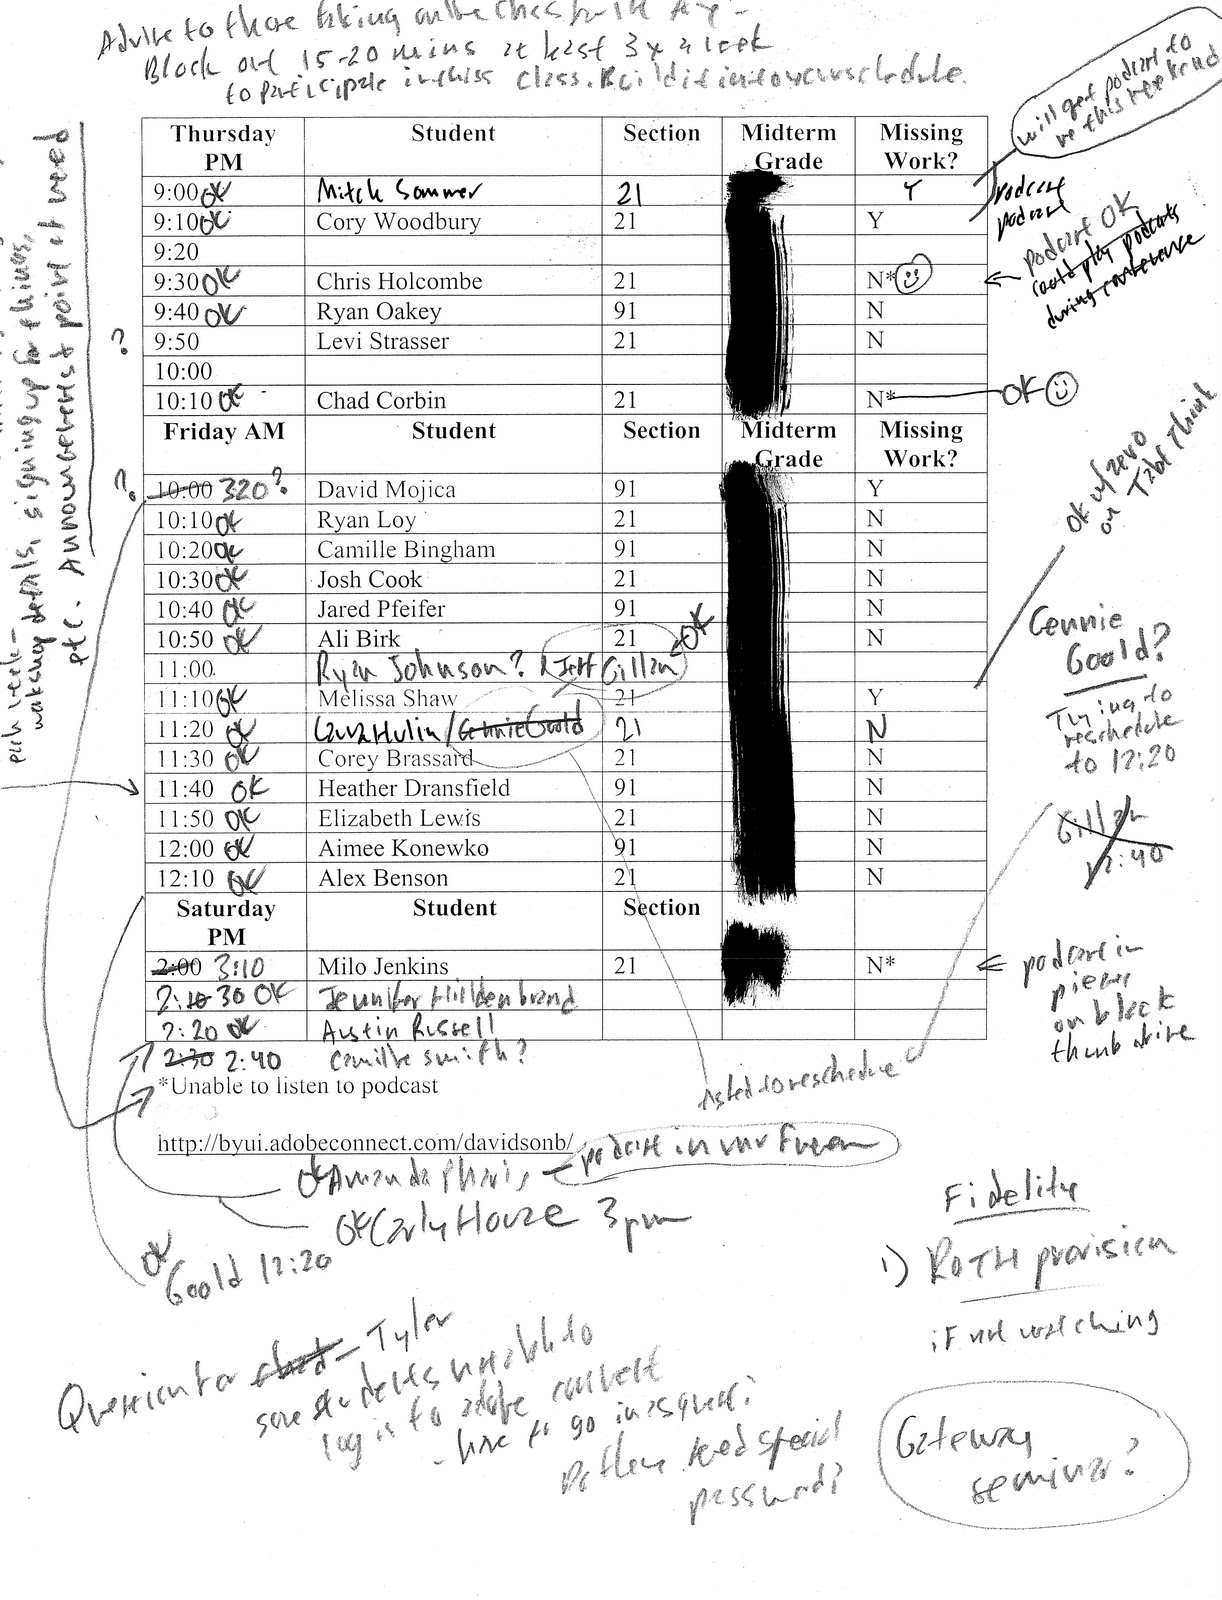 Advice to those taking online class
Block out 15-20 mins at least 3x a week
to participate in this class. Build it into your schedule.
will get podcast to
me this weekend
Thursday PM Student Section Midterm Grade Missing Work?
9:00 OK Mitch Sommer 21 Y podcast
9:10 OK Cory Woodbury 21 Y podcast
9:20
9:30 OK Chris Holcombe 21 N*
podcast OK
could play podcasts
during conference
9:40 OK Ryan Oakey 91 N
? 9:50 Levi Strasser 21 N
10:00
10:10 OK Chad Corbin 21 N* OK
Friday AM Student Section Midterm Grade Missing Work?
? 10:00 320? David Mojica 91 Y
10:10 OK Ryan Loy 21 N
10:20 OK Camille Bingham 91 N
10:30 OK Josh Cook 21 N
10:40 OK Jared Pfeifer 91 N
10:50 OK Ali Birk 21 N
11:00 Ryan Johnson? & Jeff Gillan OK
11:10 OK Melissa Shaw 21 Y
OK w/ zero
on Table Think
11:20 OK Lara Hulin / Gennie Goold 21 N
11:30 OK Corey Brassard 21 N
11:40 OK Heather Dransfield 91 N
11:50 OK Elizabeth Lewis 21 N
12:00 OK Aimee Konewko 91 N
12:10 OK Alex Benson 21 N
Gennie
Goold?
Trying to
reschedule
to 12:20
Gillan
12:40
Saturday PM Student Section
2:00 3:10 Milo Jenkins 21 N*
podcast in
pieces
on black
thumb drive
2:10 30 OK Jennifer Hilldenbrand
2:20 OK Austin Russell
2:30 2:40 Camille Smith?
*Unable to listen to podcast
Asked to reschedule
http://byui.adobeconnect.com/davidsonb/
OK Amanda Pharis - podcast in
OK Carly House 3pm
OK Goold 12:20
Fidelity
1) ROTH provision
if not matching
Question for Chad - Tyler
some students unable to
log in to adobe connect
- have to go in as guest.
Do they need special
password?
Gateway
seminar?
each week -
workshop details, signing up for things,
etc. Announcements at point of need